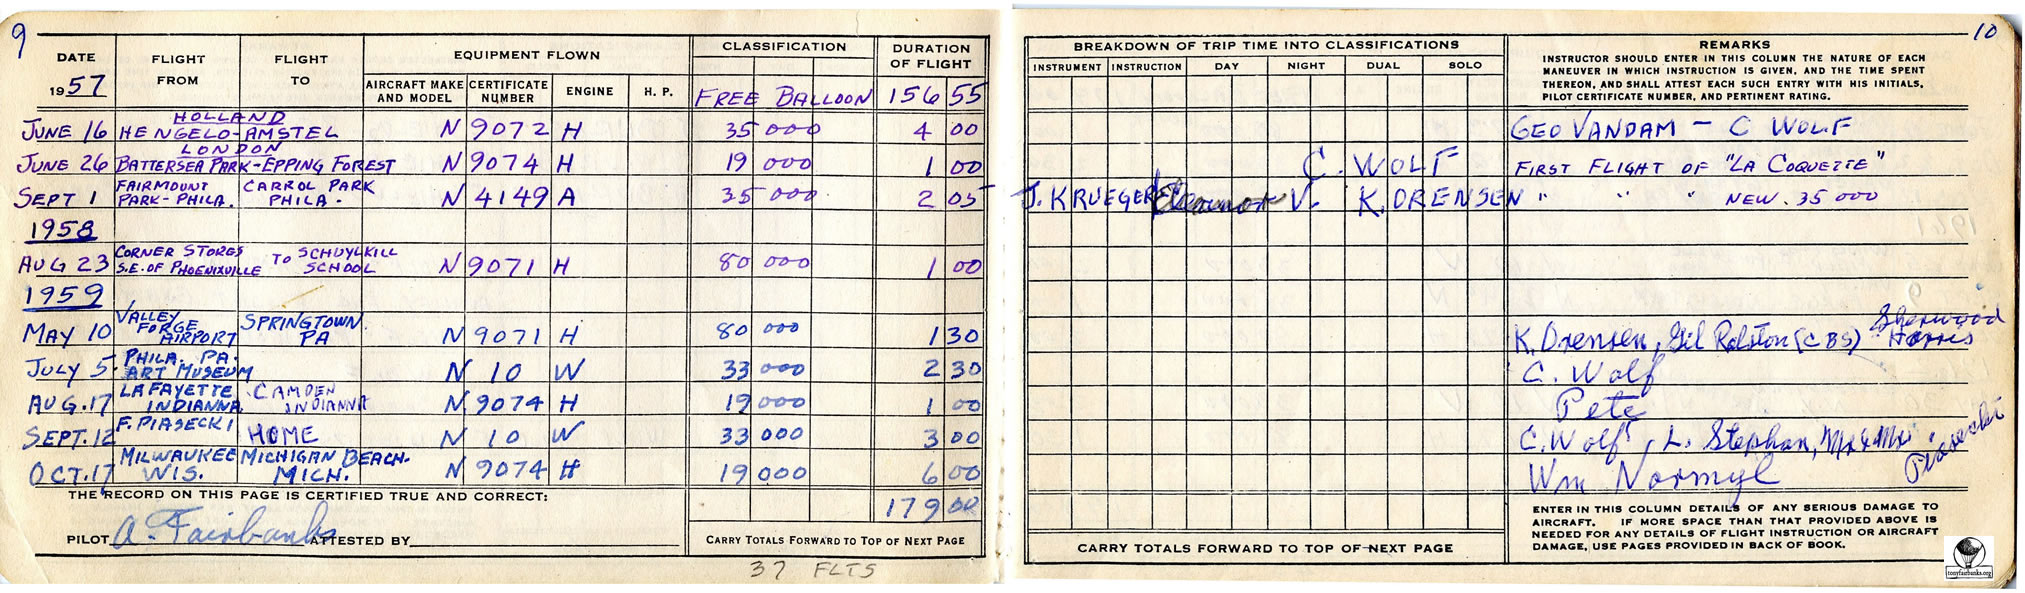 9
DATE FLIGHT FLIGHT EQUIPMENT FLOWN CLASSIFICATION DURATION OF FLIGHT
1957 FROM TO AIRCRAFT MAKE AND MODEL CERTIFICATE NUMBER ENGINE H. P. FREE BALLOON 156 55
HOLLAND
JUNE 16 HENGELO-AMSTEL N 9072 H 35 000 4 00
LONDON
JUNE 26 BATTERSEA PARK-EPPING FOREST N 9074 H 19 000 1 00
SEPT 1 FAIRMOUNT PARK-PHILA. CARROL PARK PHILA. N 4149 A 35 000 2 05
1958
AUG 23 CORNER STORES S.E. OF PHOENIXVILLE TO SCHUYLKILL SCHOOL N 9071 H 80 000 1 00
1959
MAY 10 VALLEY FORGE AIRPORT SPRINGTOWN PA N 9071 H 80 000 1 30
JULY 5 PHILA. PA. ART MUSEUM N 10 W 33 000 2 30
AUG. 17 LAFAYETTE INDIANNA CAMDEN INDIANNA N 9074 H 19 000 1 00
SEPT. 12 F. PIASECKI HOME N 10 W 33 000 3 00
OCT. 17 MILWAUKEE WIS. MICHIGAN BEACH. MICH. N 9074 H 19 000 6 00
THE RECORD ON THIS PAGE IS CERTIFIED TRUE AND CORRECT: 179 00
PILOT A. Fairbanks ATTESTED BY CARRY TOTALS FORWARD TO TOP OF NEXT PAGE
37 FLTS
10
BREAKDOWN OF TRIP TIME INTO CLASSIFICATIONS REMARKS
INSTRUMENT INSTRUCTION DAY NIGHT DUAL SOLO
INSTRUCTOR SHOULD ENTER IN THIS COLUMN THE NATURE OF EACH
MANEUVER IN WHICH INSTRUCTION IS GIVEN, AND THE TIME SPENT
THEREON, AND SHALL ATTEST EACH SUCH ENTRY WITH HIS INITIALS,
PILOT CERTIFICATE NUMBER, AND PERTINENT RATING.
GEO VANDAM - C WOLF
C. WOLF FIRST FLIGHT OF "LA COQUETTE"
J. KRUEGER Eleanor V. K. DRENSEN " " " NEW 35 000
K. Drensen, Gil Ralston (CBS) Sherwood Harris
C. Wolf
Pete
C. Wolf, L. Stephan, Mr & Mrs Piasecki
Wm Normyl
ENTER IN THIS COLUMN DETAILS OF ANY SERIOUS DAMAGE TO
AIRCRAFT. IF MORE SPACE THAN THAT PROVIDED ABOVE IS
NEEDED FOR ANY DETAILS OF FLIGHT INSTRUCTION OR AIRCRAFT
DAMAGE, USE PAGES PROVIDED IN BACK OF BOOK.
CARRY TOTALS FORWARD TO TOP OF NEXT PAGE
tonyfairbanks.org